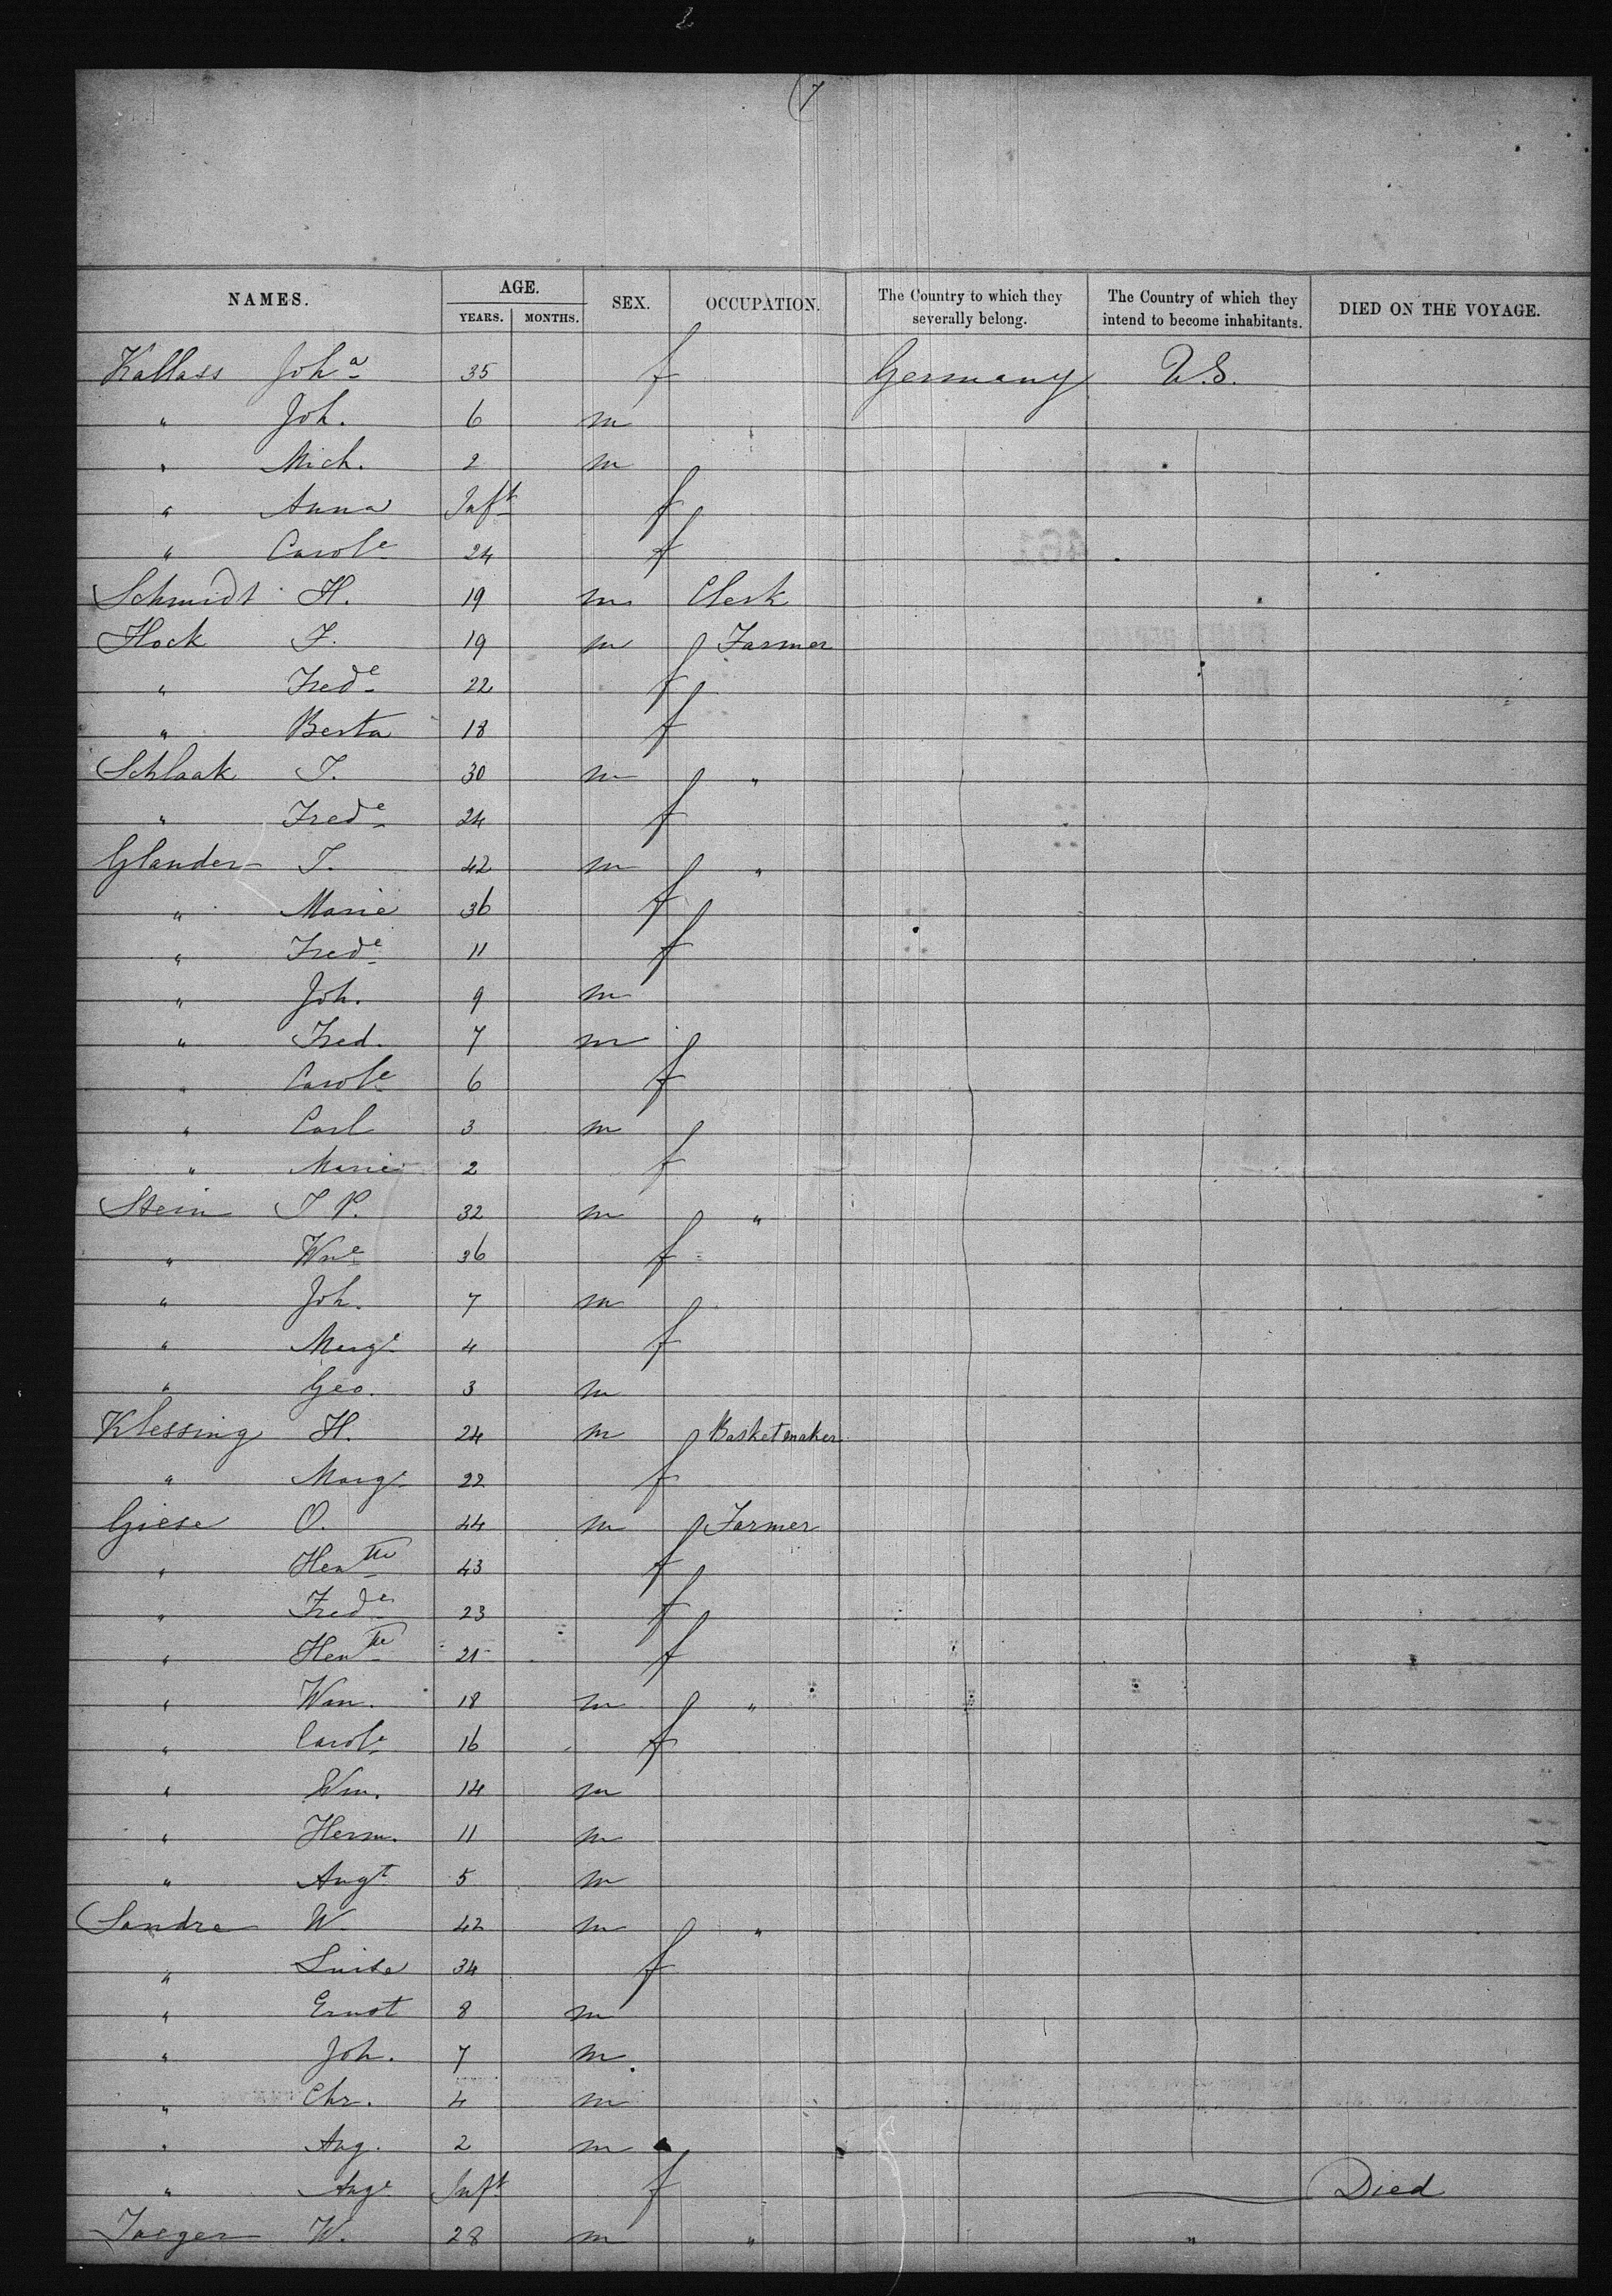 7
NAMES. AGE. YEARS. MONTHS. SEX. OCCUPATION. The Country to which they severally belong. The Country of which they intend to become inhabitants. DIED ON THE VOYAGE.
Kallass Joh<sup>a</sup> 35 f Germany U.S.
" Joh. 6 m
" Mich. 2 m
" Anna Inft f
" Carole 24 f
Schmidt H. 19 m Clerk
Hock F. 19 m Farmer
" Frede 22 f
" Berta 18 f
Schlaak J. 30 m "
" Frede 24 f
Glander J. 42 m "
" Marie 36 f
" Frede 11 f
" Joh. 9 m
" Fred. 7 m
" Carole 6 f
" Carl 3 m
" Marie 2 f
Stein J P. 32 m "
" Wme 36 f
" Joh. 7 m
" Marge 4 f
" Geo. 3 m
Klessing H. 24 m Basketmaker
" Marge 22 f
Giese O. 44 m Farmer
" Hentte 43 f
" Frede 23 f
" Hentte 21 f
" Wm. 18 m "
" Carole 16 f
" Wm. 14 m
" Herm. 11 m
" Augt 5 m
Sandre W. 42 m "
" Luise 34 f
" Ernst 8 m
" Joh. 7 m
" Chr. 4 m
" Aug. 2 m
" Auge Inft f Died
Jaeger W. 28 m " "